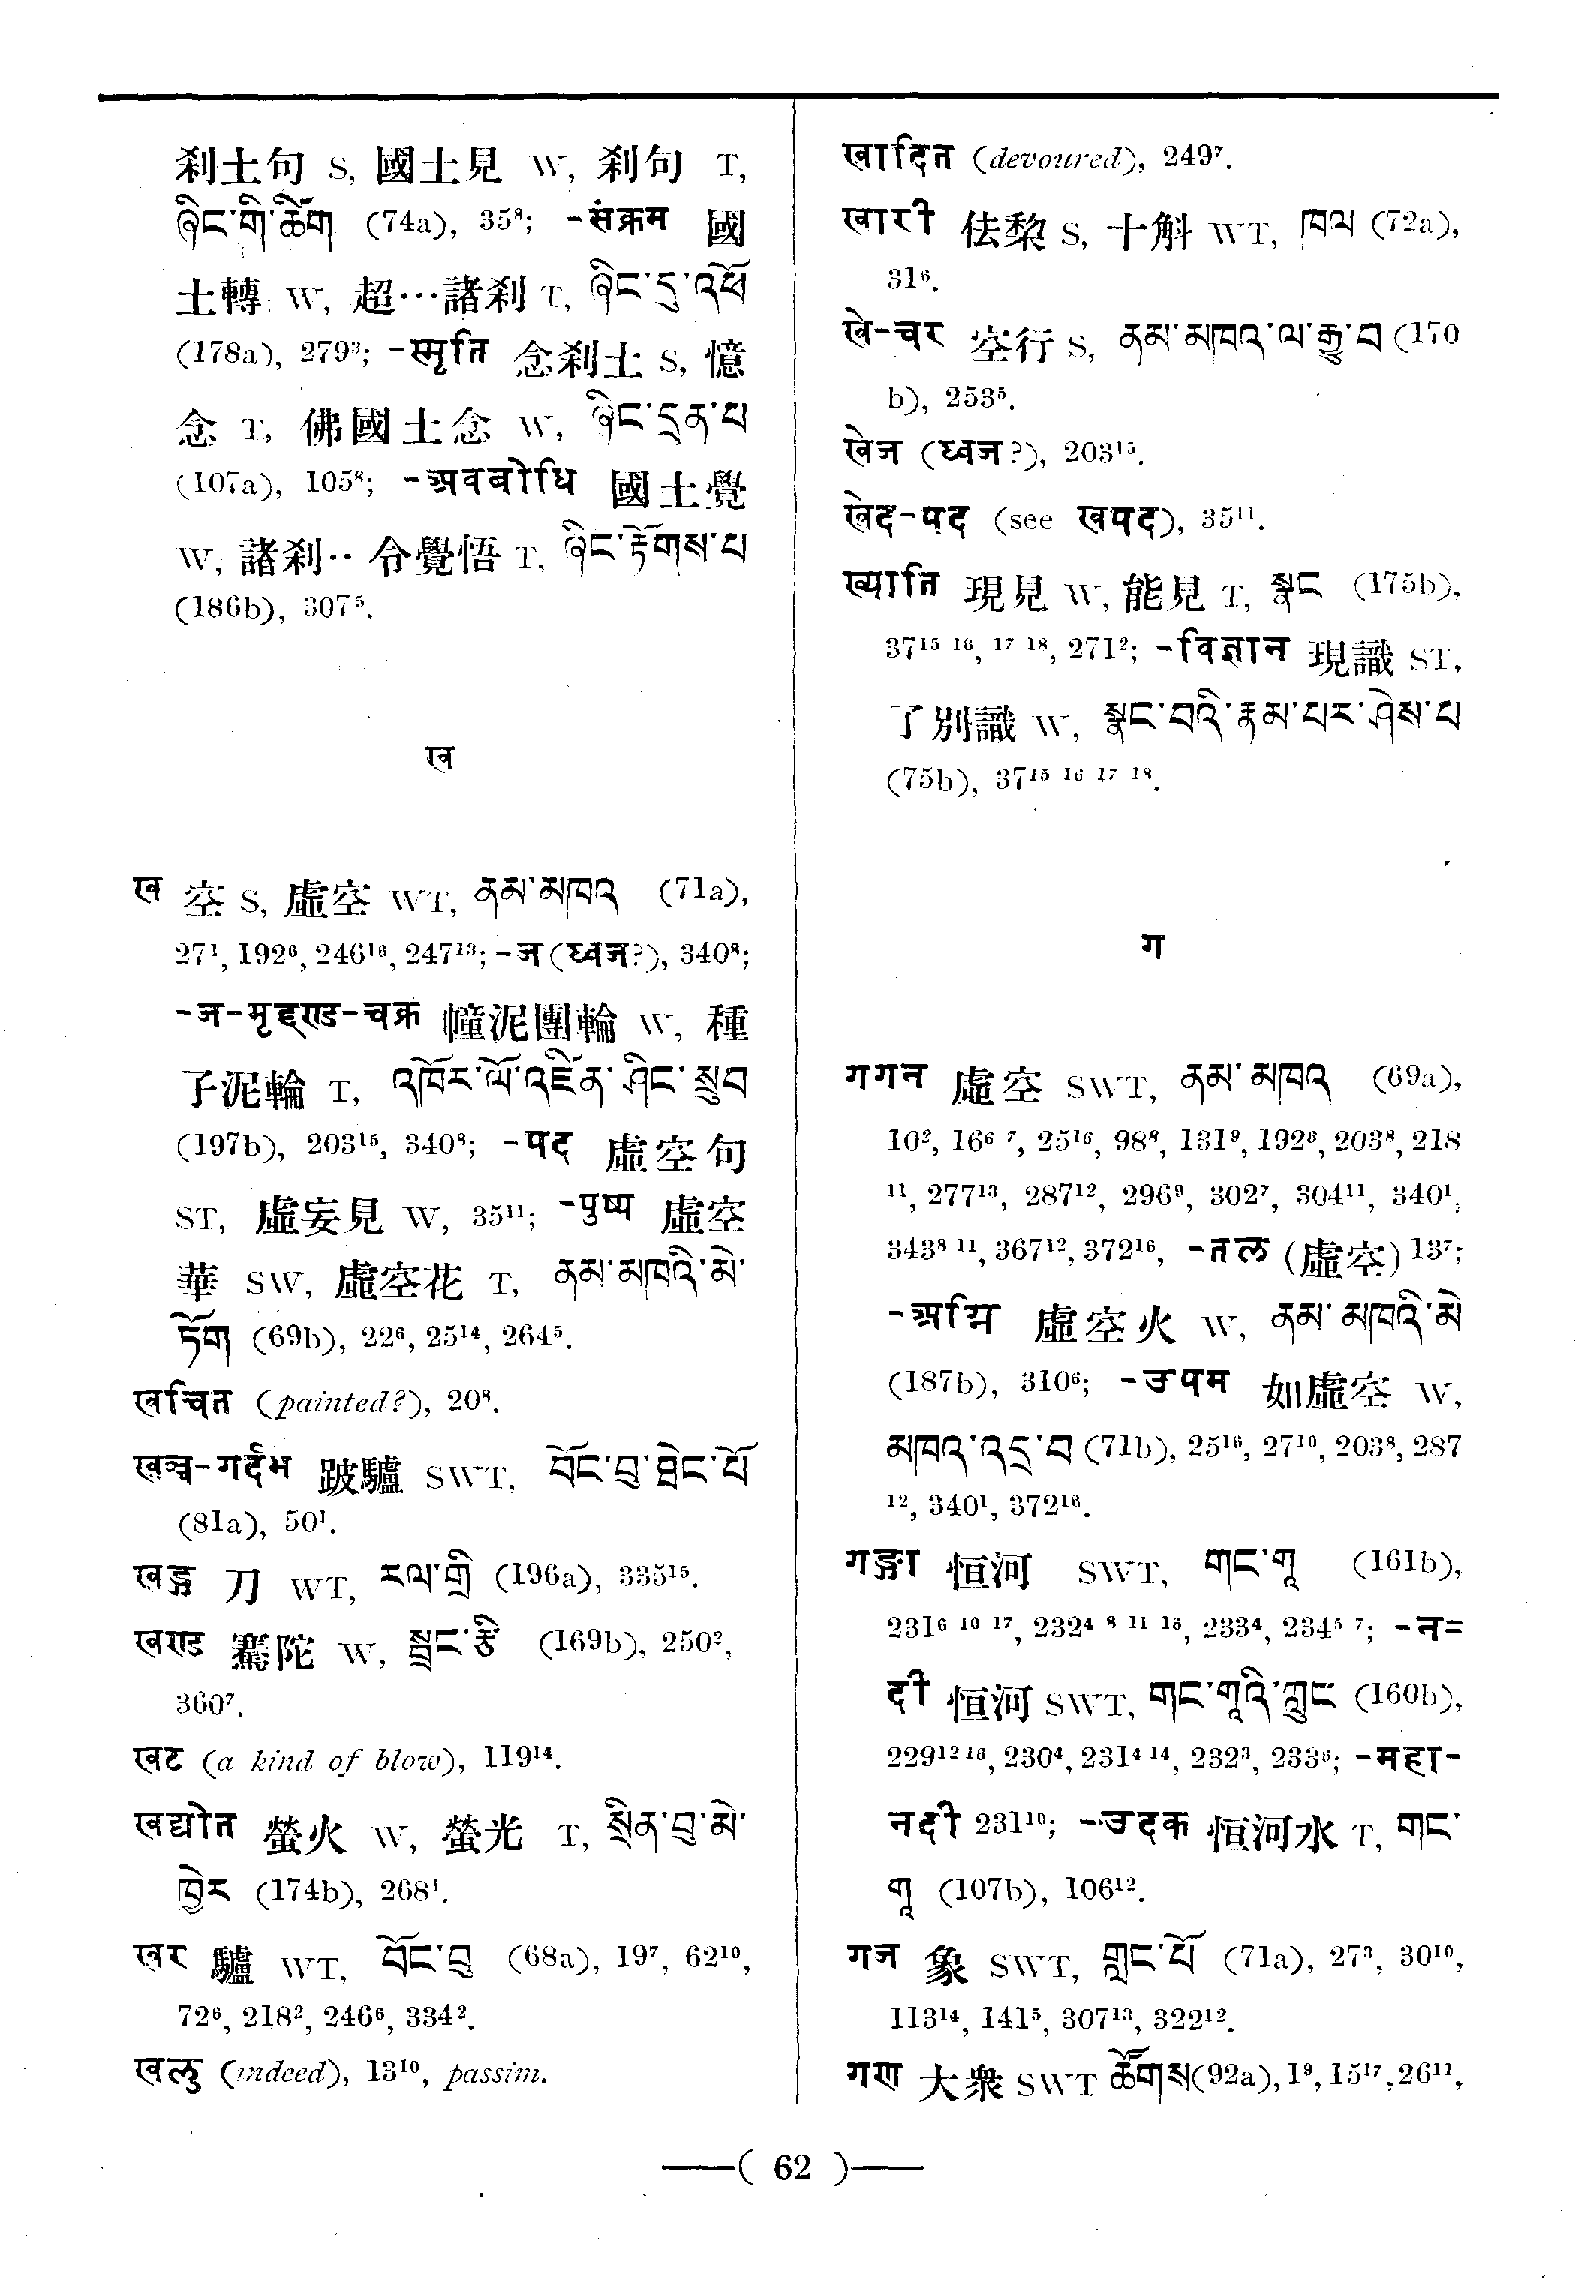 刹土句 S, 國土見 W, 刹句 T,
ཞིང་གི་ཚིག (74a), 35⁸; -संक्रम 國
土轉 W, 超…諸刹 T, ཞིང་དུ་འཕོ
(178a), 279³; -स्मृति 念刹土 S, 憶
念 T, 佛國土念 W, ཞིང་དྲན་པ
(107a), 105⁸; -अवबोधि 國土覺
W, 諸刹‥令覺悟 T, ཞིང་རྟོགས་པ
(186b), 307⁵.
ख
ख 空 S, 虛空 WT, ནམ་མཁའ (71a),
27¹, 192⁶, 246¹⁶, 247¹³; -ज (ध्वज?), 340⁸;
-ज-मृद्दण्ड-चक्र 幢泥團輪 W, 種
子泥輪 T, འཁོར་ལོ་འཛིན་ཤིང་སྲུབ
(197b), 203¹⁵, 340⁸; -पद 虛空句
ST, 虛妄見 W, 35¹¹; -पुष्प 虛空
華 SW, 虛空花 T, ནམ་མཁའི་མེ་
ཏོག (69b), 22⁶, 25¹⁴, 264⁵.
खचित (painted?), 20⁸.
खञ्ज-गर्दभ 跛驢 SWT, བོང་བུ་ཐེང་པོ
(81a), 50¹.
खड्ग 刀 WT, རལ་གྲི (196a), 335¹⁵.
खण्ड 騫陀 W, སྦྲང་རྩི (169b), 250²,
360⁷.
खट (a kind of blow), 119¹⁴.
खद्योत 螢火 W, 螢光 T, སྲིན་བུ་མེ་
ཁྱེར (174b), 268¹.
खर 驢 WT, བོང་བུ (68a), 19⁷, 62¹⁰,
72⁶, 218², 246⁶, 334².
खलु (indeed), 13¹⁰, passim.
खादित (devoured), 249⁷.
खारी 佉黎 S, 十斛 WT, ཁལ (72a),
31⁶.
खे-चर 空行 S, ནམ་མཁའ་ལ་རྒྱུ་བ (170
b), 253⁵.
खेज (ध्वज?), 203¹⁵.
खेद-पद (see खपद), 35¹¹.
ख्याति 現見 W, 能見 T, སྣང (175b),
37¹⁵ ¹⁶, ¹⁷ ¹⁸, 271²; -विज्ञान 現識 ST,
了別識 W, སྣང་བའི་རྣམ་པར་ཤེས་པ
(75b), 37¹⁵ ¹⁶ ¹⁷ ¹⁸.
ग
गगन 虛空 SWT, ནམ་མཁའ (69a),
10², 16⁶ ⁷, 25¹⁶, 98⁸, 131⁹, 192⁶, 203⁸, 218
¹¹, 277¹³, 287¹², 296⁹, 302⁷, 304¹¹, 340¹,
343⁸ ¹¹, 367¹², 372¹⁶, -तल (虛空) 13⁷;
-अग्नि 虛空火 W, ནམ་མཁའི་མེ
(187b), 310⁶; -उपम 如虛空 W,
མཁའ་འདྲ་བ (71b), 25¹⁶, 27¹⁰, 203⁸, 287
¹², 340¹, 372¹⁶.
गङ्गा 恒河 SWT, གང་གཱ (161b),
231⁶ ¹⁰ ¹⁷, 232⁴ ⁸ ¹¹ ¹⁵, 233⁴, 234⁵ ⁷; -न=
दी 恒河 SWT, གང་གཱའི་ཀླུང (160b),
229¹² ¹⁶, 230⁴, 231⁴ ¹⁴, 232³, 233⁶; -महा-
नदी 231¹⁰; -उदक 恒河水 T, གང་
གཱ (107b), 106¹².
गज 象 SWT, གླང་པོ (71a), 27³, 30¹⁰,
113¹⁴, 141⁵, 307¹³, 322¹².
गण 大衆 SWT ཚོགས (92a), 1⁹, 15¹⁷, 26¹¹,
—( 62 )—